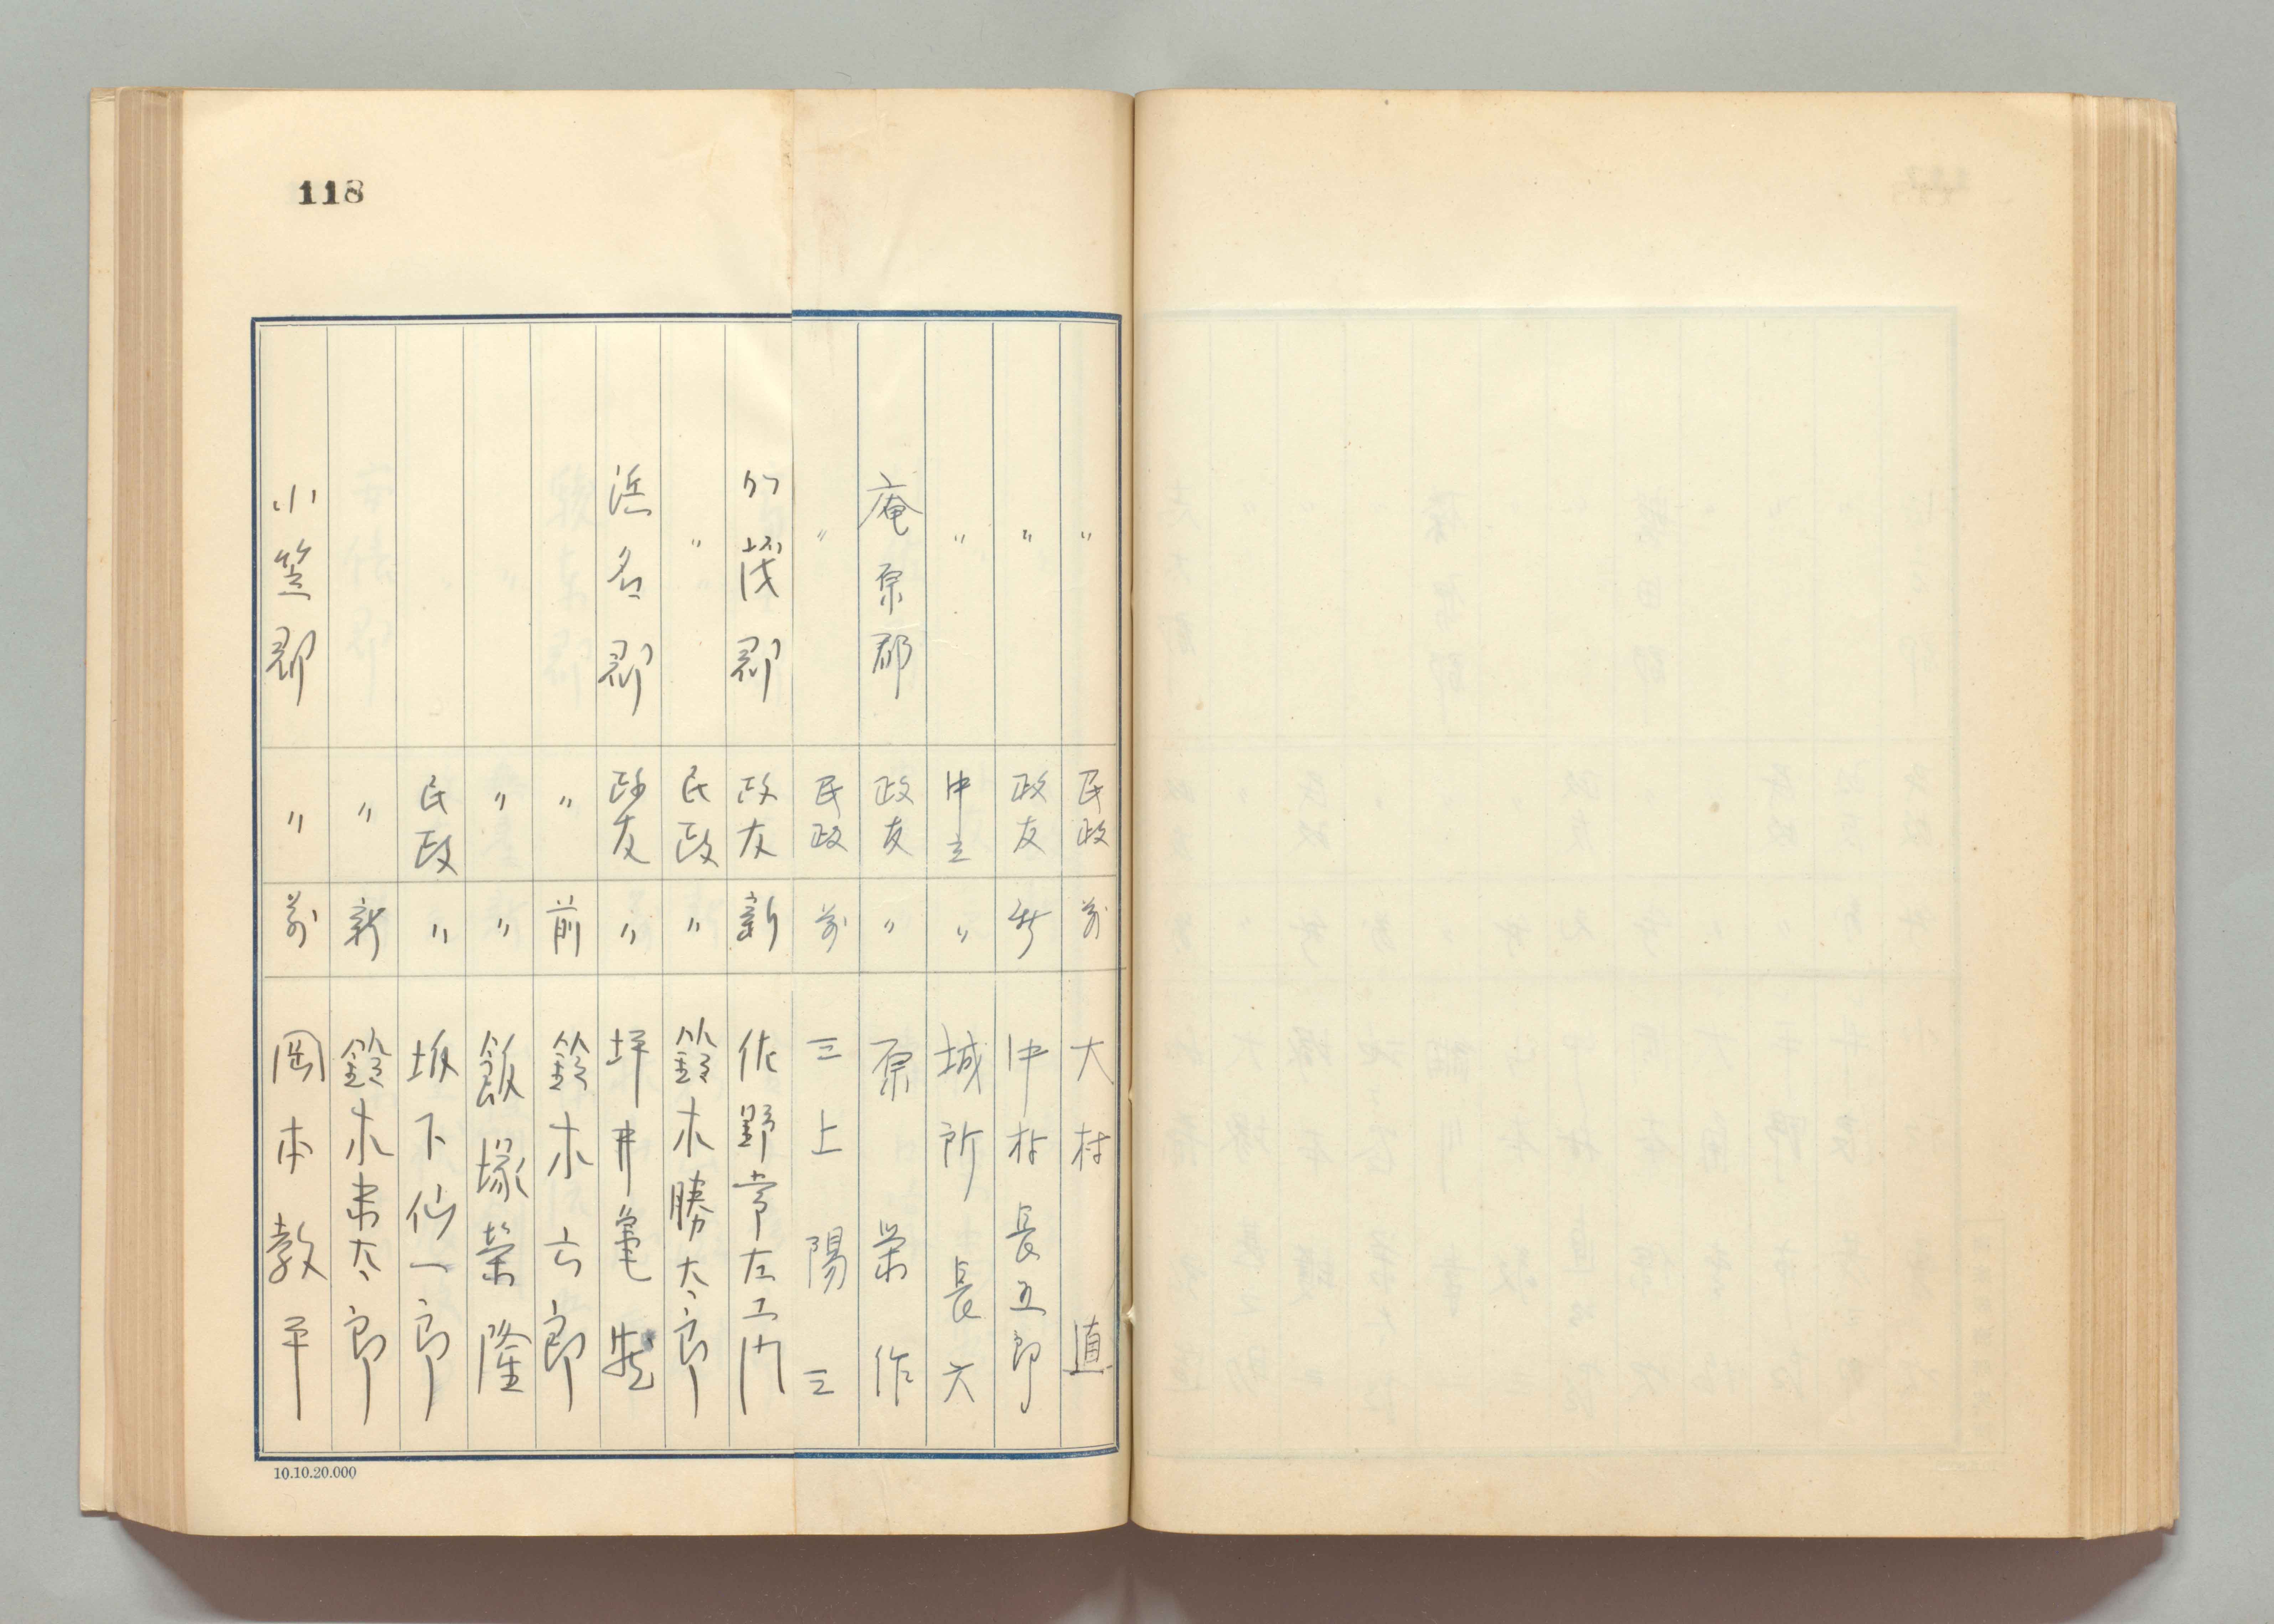 118
〃 民政 前 大村 直
〃 政友 新 中村長五郎
〃 中立 〃 城所長六
庵原郡 政友 〃 原 栄作
〃 民政 前 三上陽三
加茂郡 政友 新 佐野常左エ門
〃 民政 〃 鈴木勝太郎
浜名郡 政友 〃 坪井亀
〃 前 鈴木六郎
〃 〃 飯塚榮隆
民政 〃 坂下仙一郎
〃 新 鈴木東太郎
小笠郡 〃 前 岡本教平
10.10.20.000